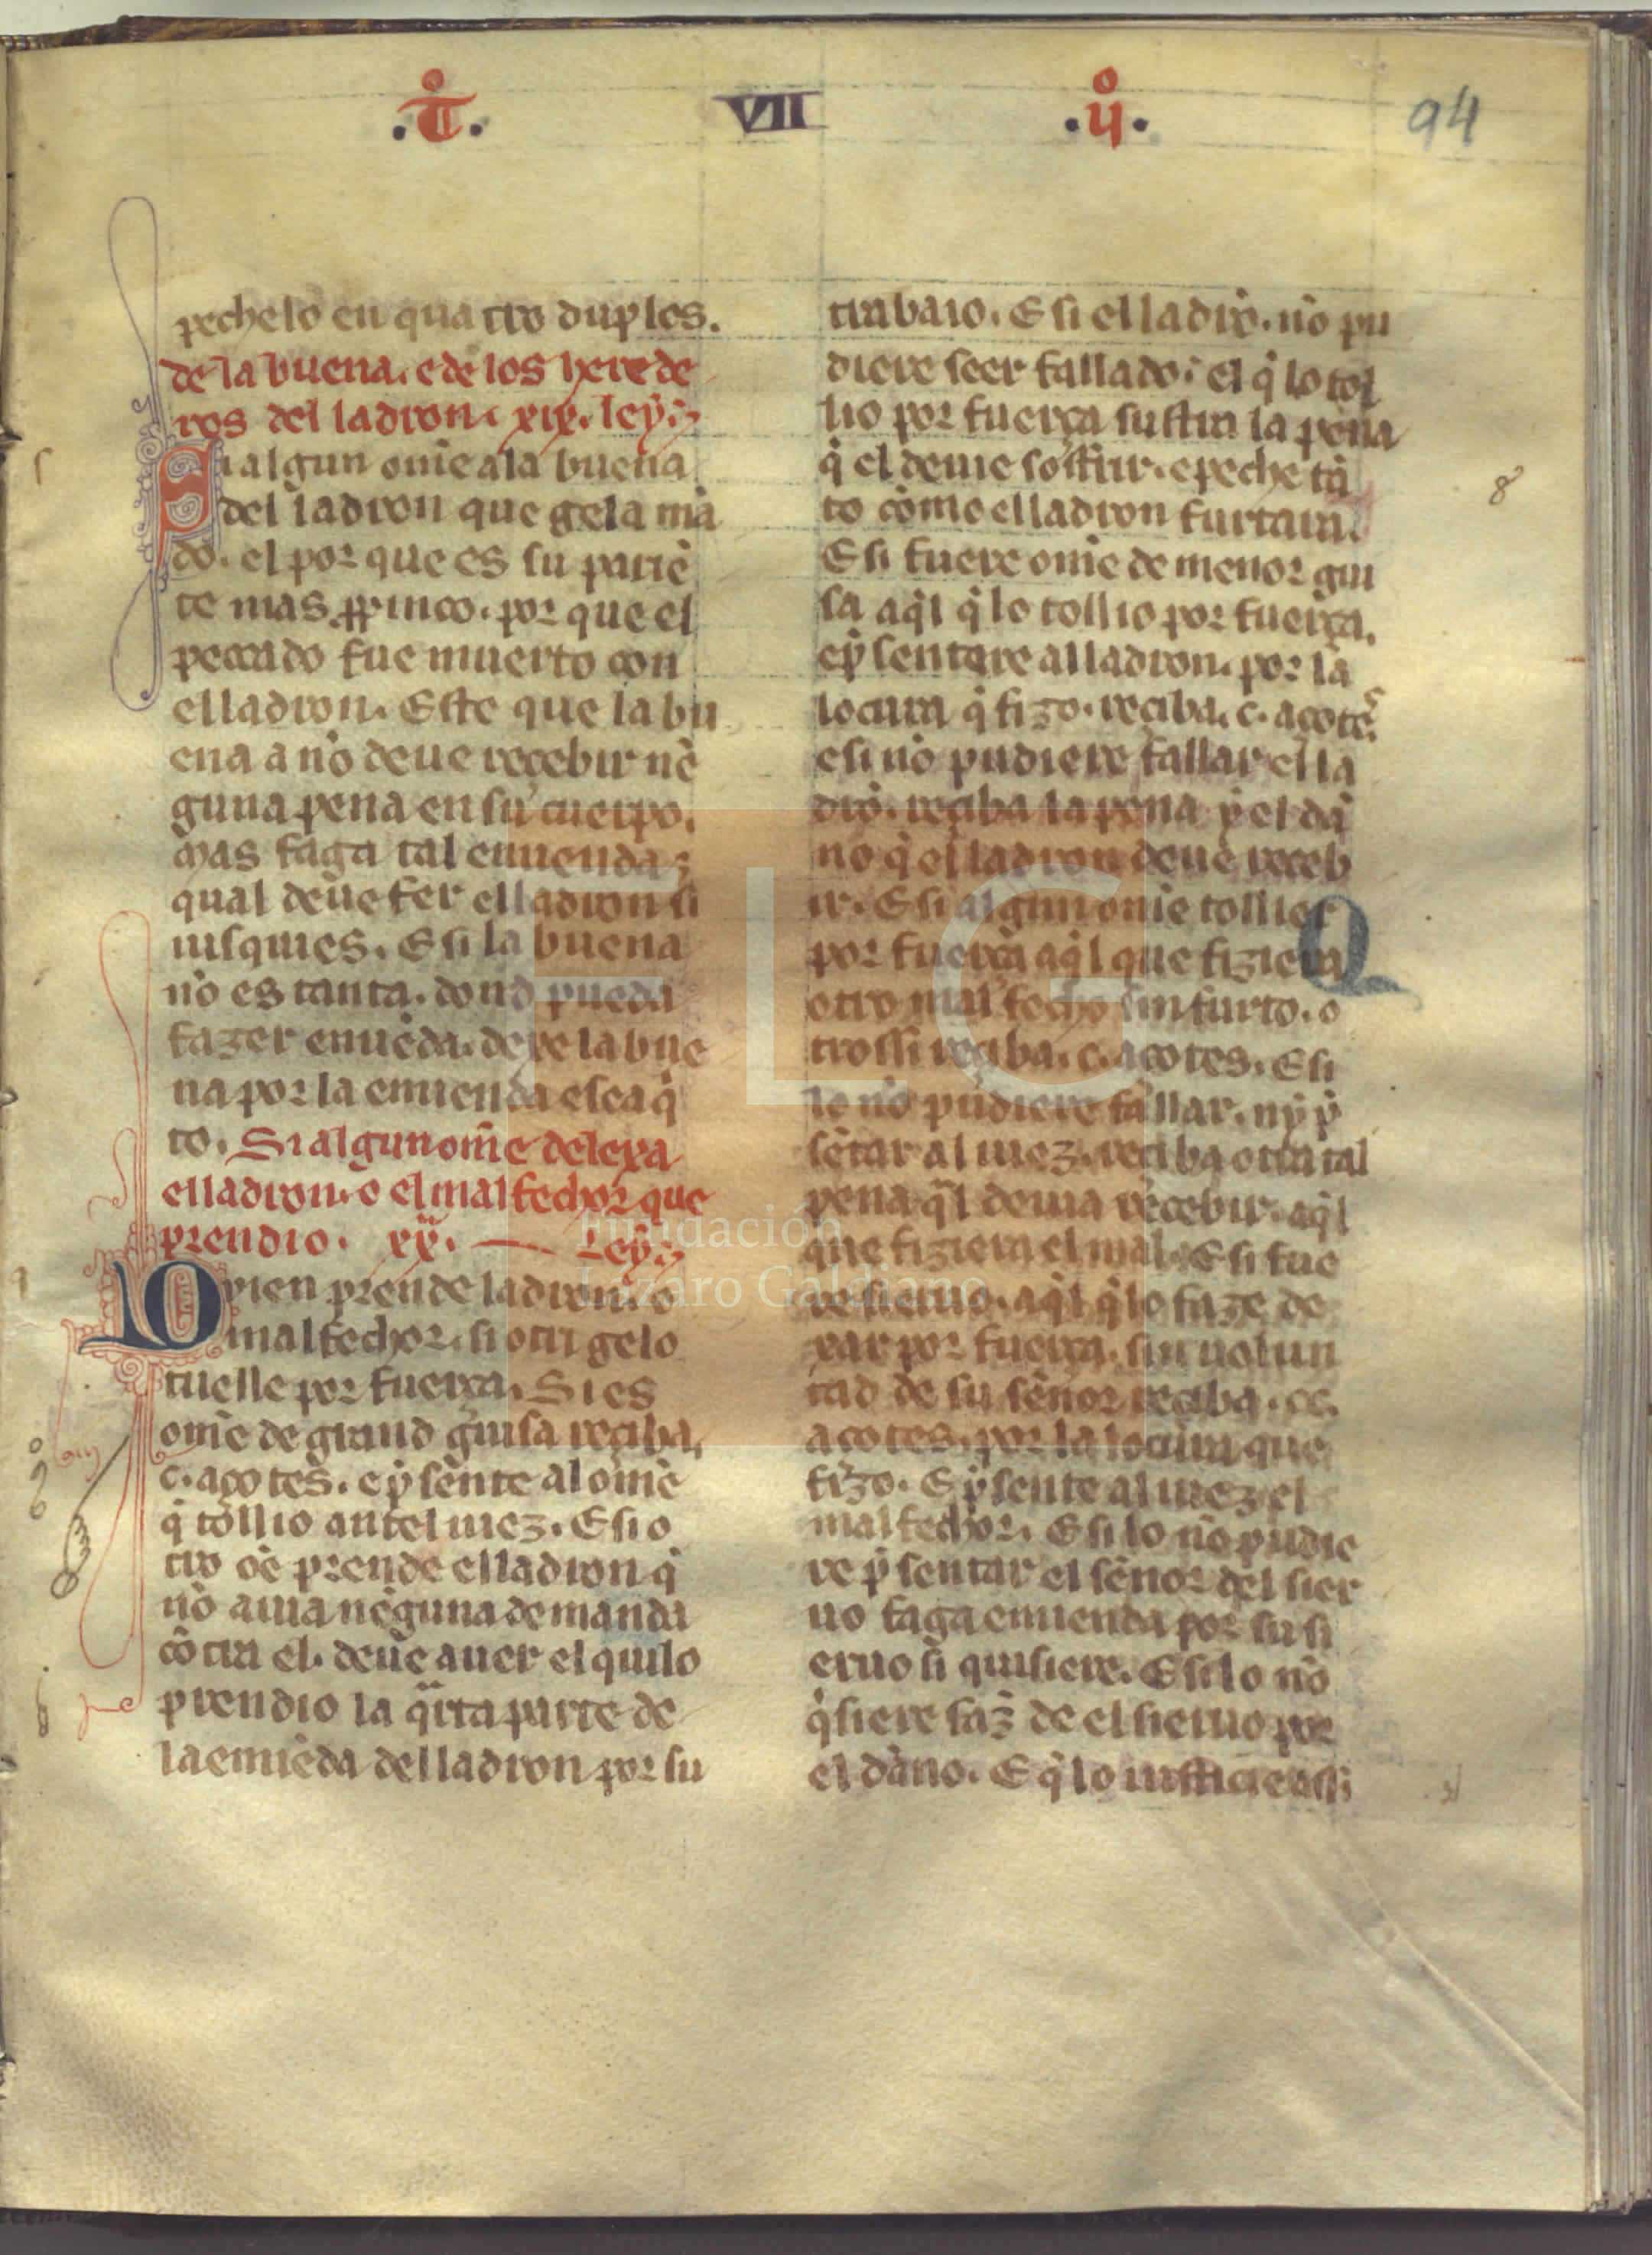 .T̊. VII .ij̊. 94
pechelo en qua tro duplos.
de la buena. e de los herede
ros del ladron. xix. ley.
Si algun om̄e a la buena
del ladron que gela mā
dó. el por que es su pariē
te mas ꝓpinco. por que el
peccado fue muerto con
el ladron. Este que la bu
ena a nō deue recebir nē
guna pena en su cuerpo.
mas faga tal emienda
qual deue fer el ladron si
uisquies. E si la buena
nō es tanta. dond pueda
fazer emiēda. dexe la bue
na por la emienda e sea q̇
to. Si algun om̄e delexa
el ladron. o el malfechor que
prendio. xx. Ley
Quien prende ladron. o
malfechor. si otri gelo
tuelle por fuerça. Si es
om̄e de grand guisa reciba.
c. aço tes. e p̄sente al om̄e
q̇ tollio antel iuez. E si o
tro oē prende el ladron q̇
nō aiua nēguna demanda
cōtra el. deue auer el qui lo
prendio la q̄rta parte de
la emiēda del ladron por su
trabaio. E si el ladrō. nō pu
diere seer fallado. el q̇ lo tol
lio por fuerça sufra la pena
q̇ el deuie soffrir. e peche tā
to como el ladron furtara.
E si fuere om̄e de menor gui
sa aq̇l q̇ lo tollio por fuerça.
e p̄sentare al ladron. por la
locura q̇ fizo. reciba. c. açotes.
e si nō pudiere fallar el la
drō. reciba la pena y el dā
no q̇ el ladron deue receb
ir. E si algun om̄e tollier
por fuerça aq̇l que fiziera
otro mal fecho sin furto. o
trossi reciba. c. aço tes. E si
lo nō pudiere fallar. nȳ p̄
sētar al iuez. reciba otra tal
pena q̄l deuia recebir. aq̇l
que fiziera el mal. E si fue
re sieruo. aq̇l q̇ lo faze de
xar por fuerça. sin uolun
tad de su sēnor reciba. cc.
aço tes. por la locura que
fizo. E p̄sente al iuez el
malfechor. E si lo nō pudie
re p̄sentar el sēnor del sier
uo faga emienda por su si
eruo si quisiere. E si lo nō
q̇siere faz̄ de el sieruo por
el dāno. E q̇ lo
Q
FLG
Fundación
Lázaro Galdiano